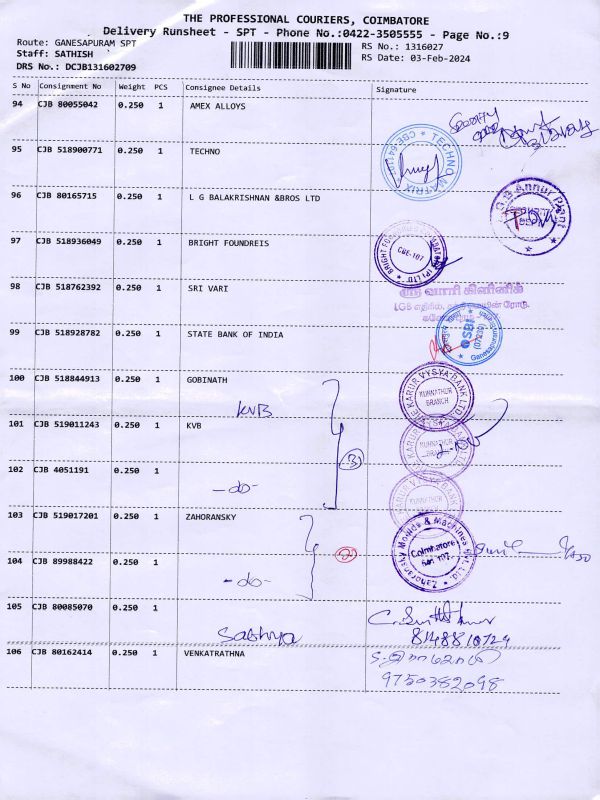 THE PROFESSIONAL COURIERS, COIMBATORE
Delivery Runsheet - SPT - Phone No.:0422-3505555 - Page No.:9
Route: GANESAPURAM SPT
Staff: SATHISH
DRS No.: DCJB131602709
RS No.: 1316027
RS Date: 03-Feb-2024
S No Consignment No Weight PCS Consignee Details Signature
94 CJB 80055042 0.250 1 AMEX ALLOYS
95 CJB 518900771 0.250 1 TECHNO
TECHNO MATRIX
96 CJB 80165715 0.250 1 L G BALAKRISHNAN &BROS LTD
L.G.B Annur Plant
97 CJB 518936049 0.250 1 BRIGHT FOUNDREIS
CBE-107
(P) LTD
98 CJB 518762392 0.250 1 SRI VARI
ஸ்ரீ வாரி கிளினிக்
LGB எதிரில்,
99 CJB 518928782 0.250 1 STATE BANK OF INDIA
SBI
Ganesapuram
100 CJB 518844913 0.250 1 GOBINATH
KVB
THE KARUR VYSYA BANK LTD
KUNNATHUR
BRANCH
101 CJB 519011243 0.250 1 KVB
KUNNATHUR
102 CJB 4051191 0.250 1
-do-
3
KARUR VYSYA BANK
KUNNATHUR
103 CJB 519017201 0.250 1 ZAHORANSKY
2
Zahoransky Moulds & Machines Pvt. Ltd.
Coimbatore
641 107
104 CJB 89988422 0.250 1
-do-
105 CJB 80085070 0.250 1
Sathya
8148810729
106 CJB 80162414 0.250 1 VENKATRATHNA
9750382098